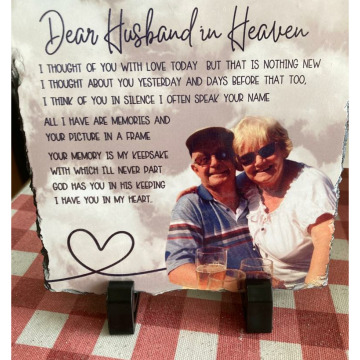 Dear Husband in Heaven
I THOUGHT OF YOU WITH LOVE TODAY BUT THAT IS NOTHING NEW
I THOUGHT ABOUT YOU YESTERDAY AND DAYS BEFORE THAT TOO,
I THINK OF YOU IN SILENCE I OFTEN SPEAK YOUR NAME
ALL I HAVE ARE MEMORIES AND
YOUR PICTURE IN A FRAME
YOUR MEMORY IS MY KEEPSAKE
WITH WHICH I'LL NEVER PART
GOD HAS YOU IN HIS KEEPING
I HAVE YOU IN MY HEART.